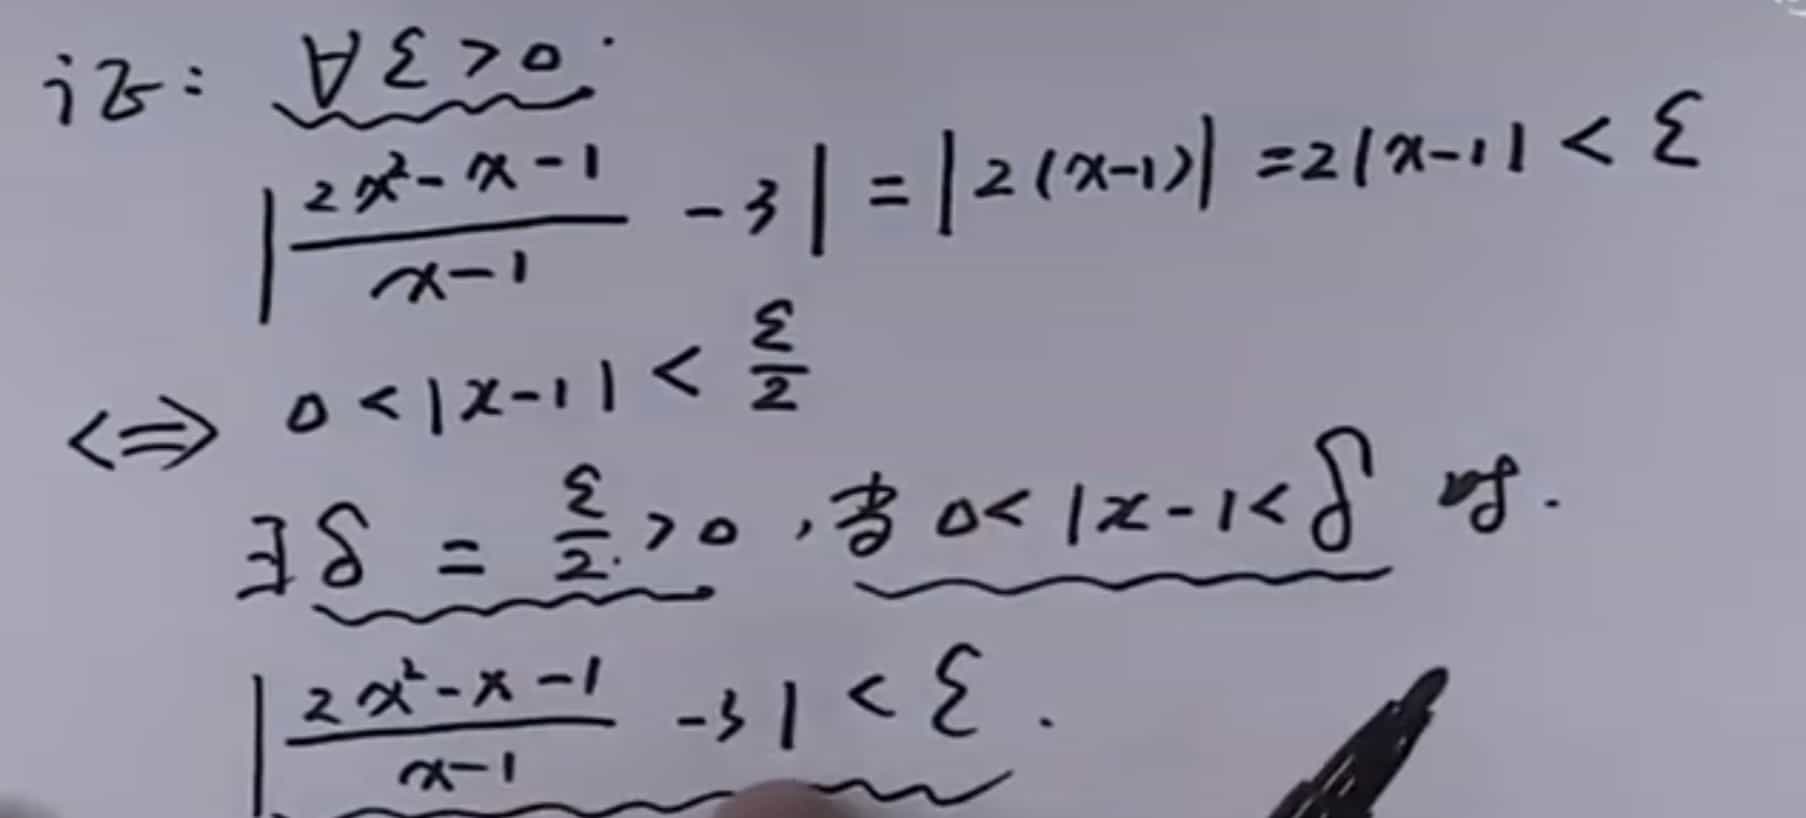 证: ∀ε>0.
|(2x²-x-1)/(x-1) -3| = |2(x-1)| =2|x-1| < ε
<=> 0<|x-1| < ε/2
∃δ = ε/2 >0 , 当 0< |x-1< δ 时.
|(2x²-x-1)/(x-1) -3| < ε.